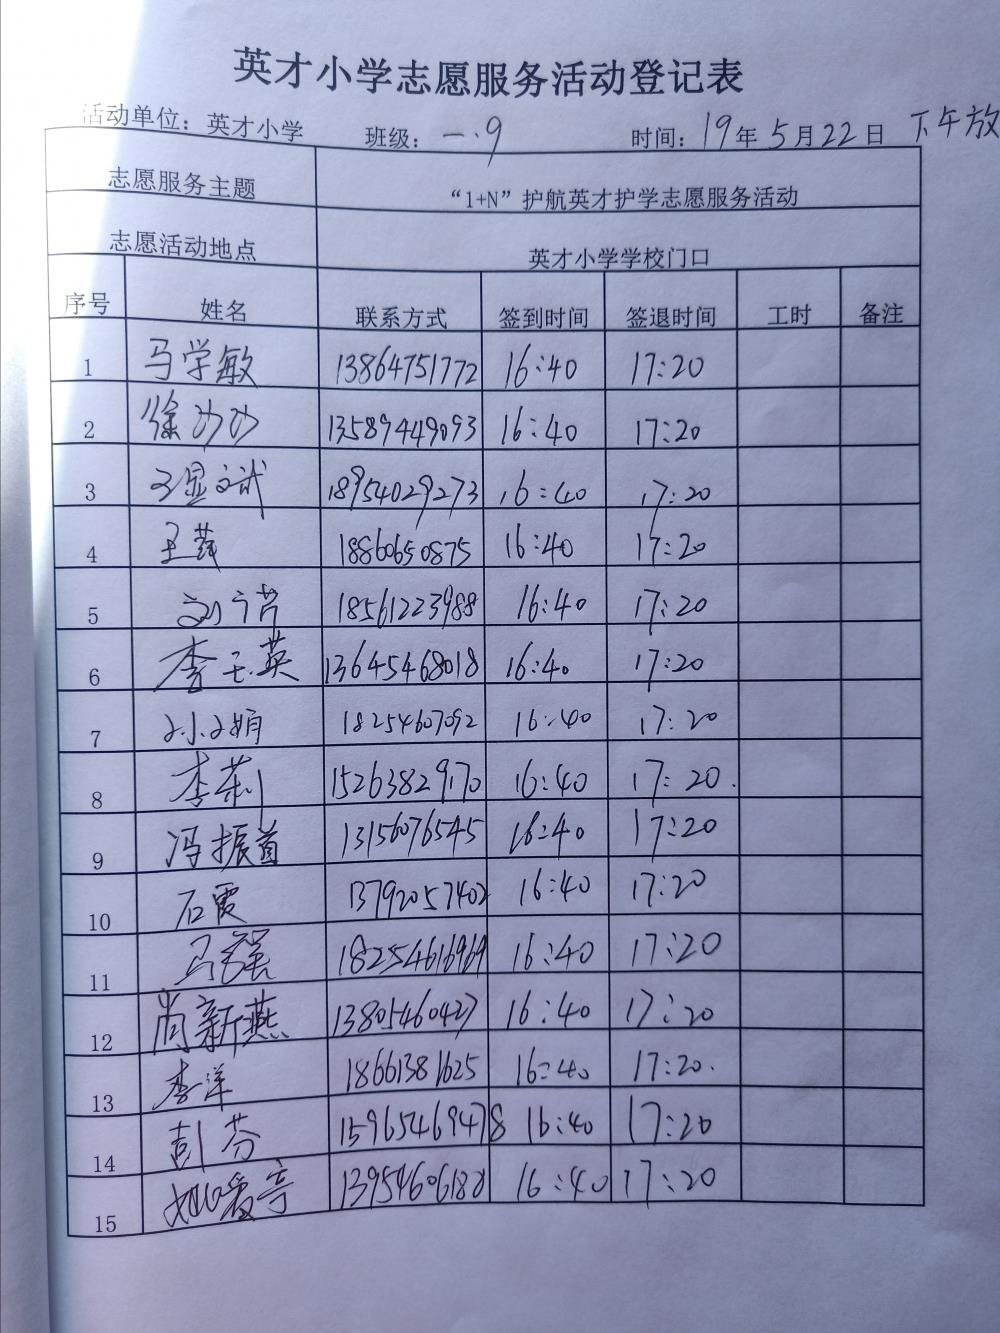 英才小学志愿服务活动登记表
活动单位：英才小学 班级：一.9 时间：19年5月22日 下午放
志愿服务主题 “1+N”护航英才护学志愿服务活动
志愿活动地点 英才小学学校门口
序号 姓名 联系方式 签到时间 签退时间 工时 备注
1 马学敏 13864751772 16:40 17:20
2 徐 13589449093 16:40 17:20
3 王显斌 18954029273 16:40 17:20
4 王 18860650875 16:40 17:20
5 刘宁 18561223988 16:40 17:20
6 李玉英 13645468018 16:40 17:20
7 孙小娟 18254607092 16:40 17:20
8 李莉 15263829170 16:40 17:20.
9 冯振 13156076545 16:40 17:20
10 石霞 13792057402 16:40 17:20
11 马强 18254616969 16:40 17:20
12 尚新燕 13805460427 16:40 17:20
13 李洋 18661381625 16:40 17:20.
14 彭芬 15965469478 16:40 17:20
15 姚爱亭 13954606188 16:40 17:20